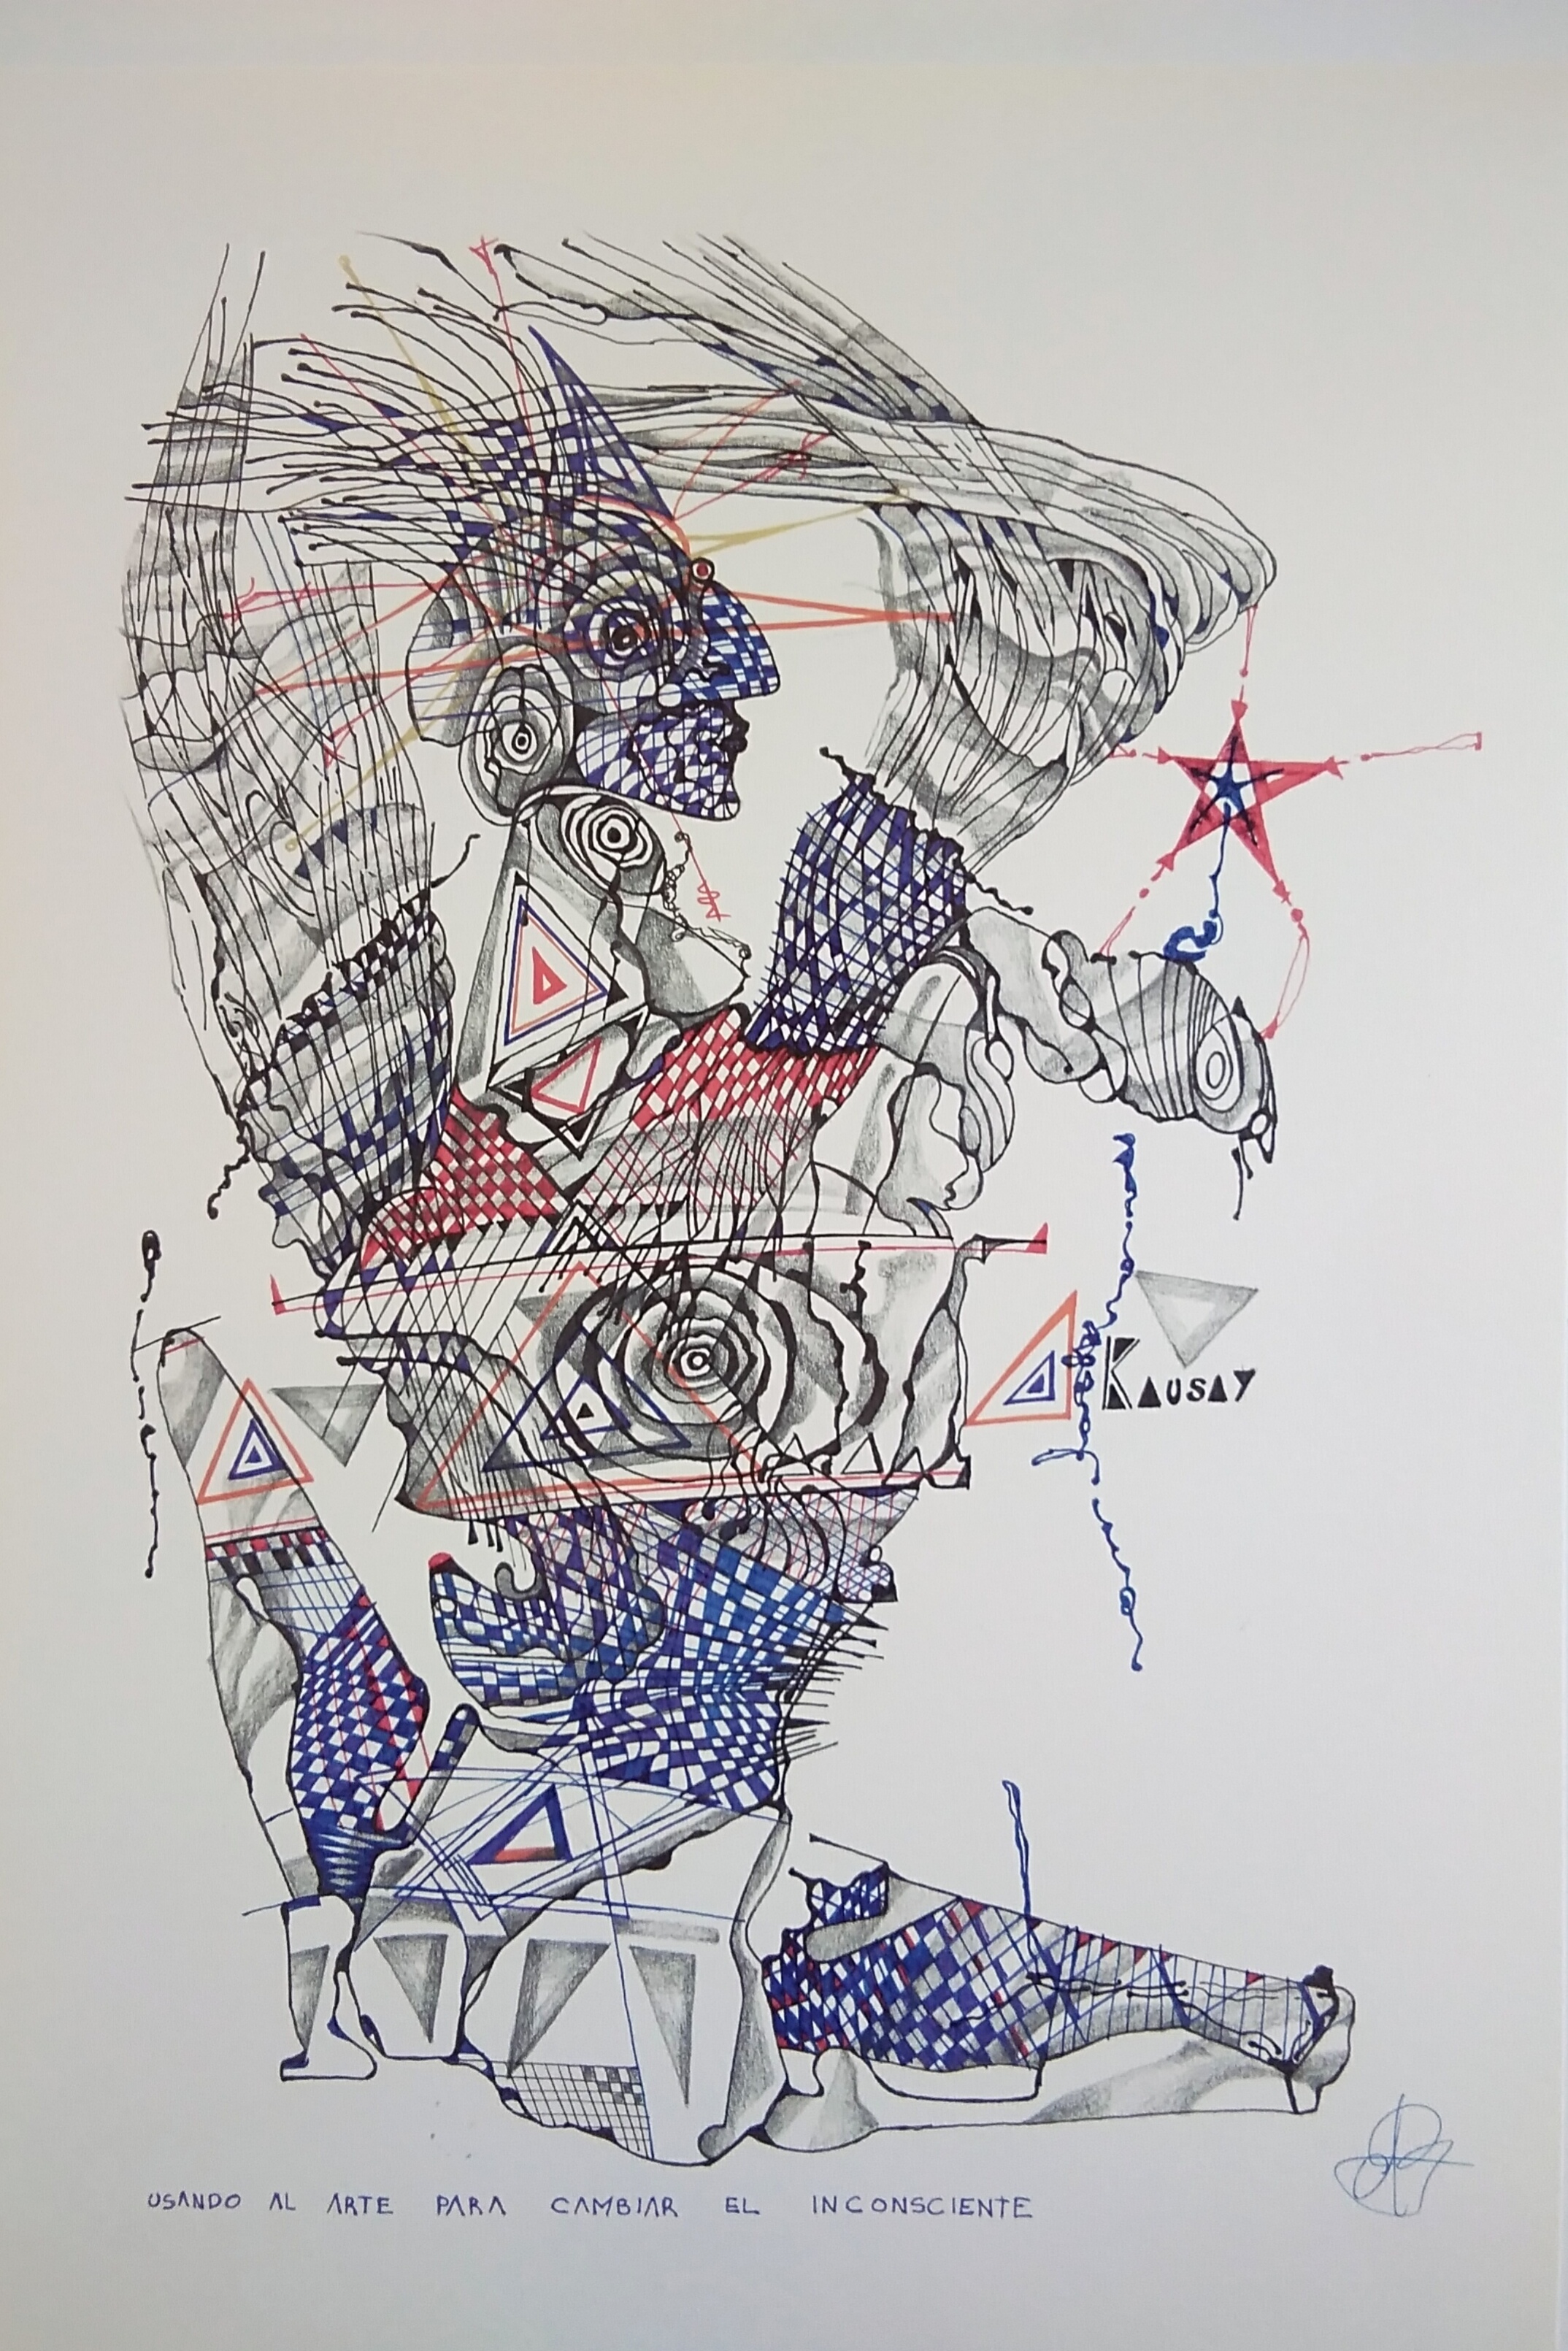 KAUSAY
USANDO AL ARTE PARA CAMBIAR EL INCONSCIENTE